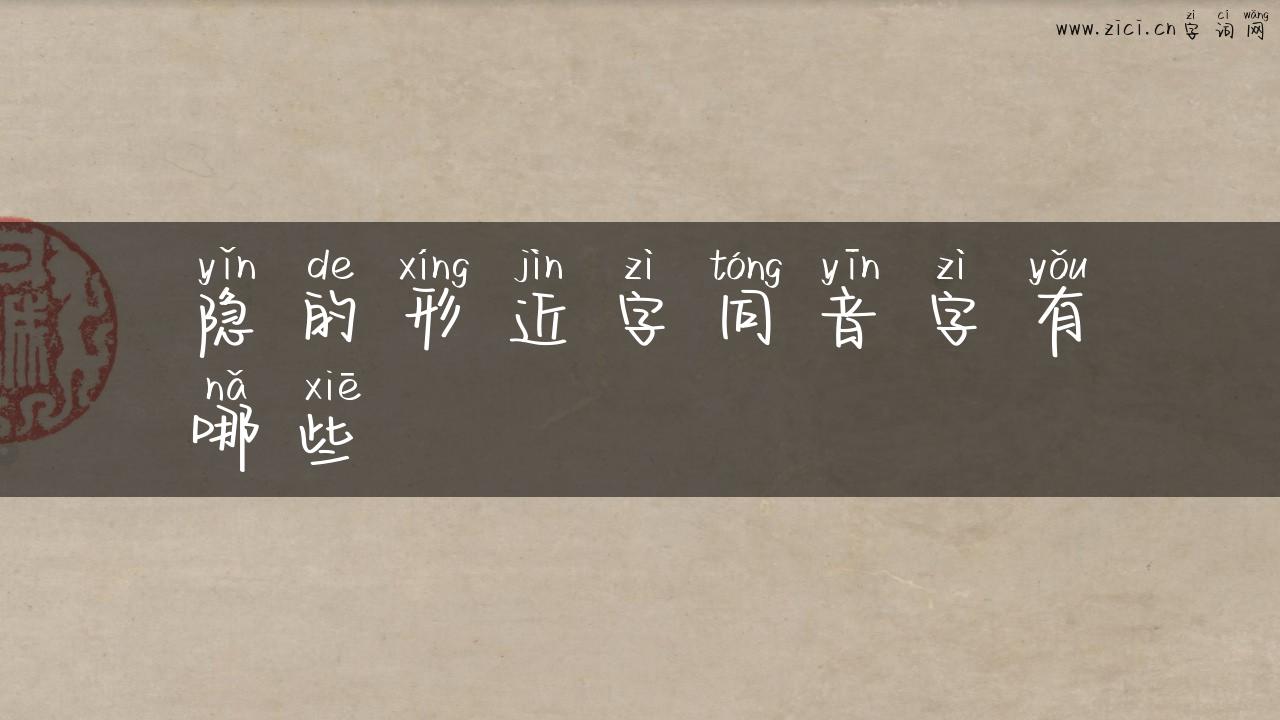 zì cí wǎng
www.zici.cn 字词网
yǐn de xíng jìn zì tóng yīn zì yǒu
隐的形近字同音字有
nǎ xiē
哪些